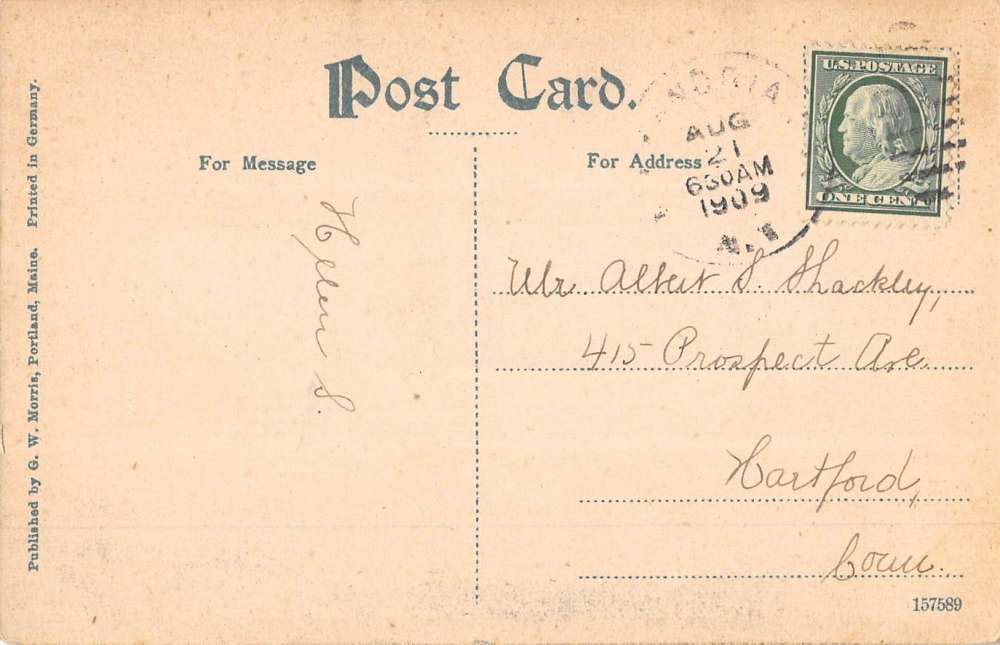 Post Card.
For Message
For Address
NDRIA
AUG
21
630AM
1909
U.S. POSTAGE
ONE CENT
Mr. Albert S. Shackley,
415 Prospect Ave.
Hartford,
Conn.
Helen S.
Published by G. W. Morris, Portland, Maine. Printed in Germany.
157589